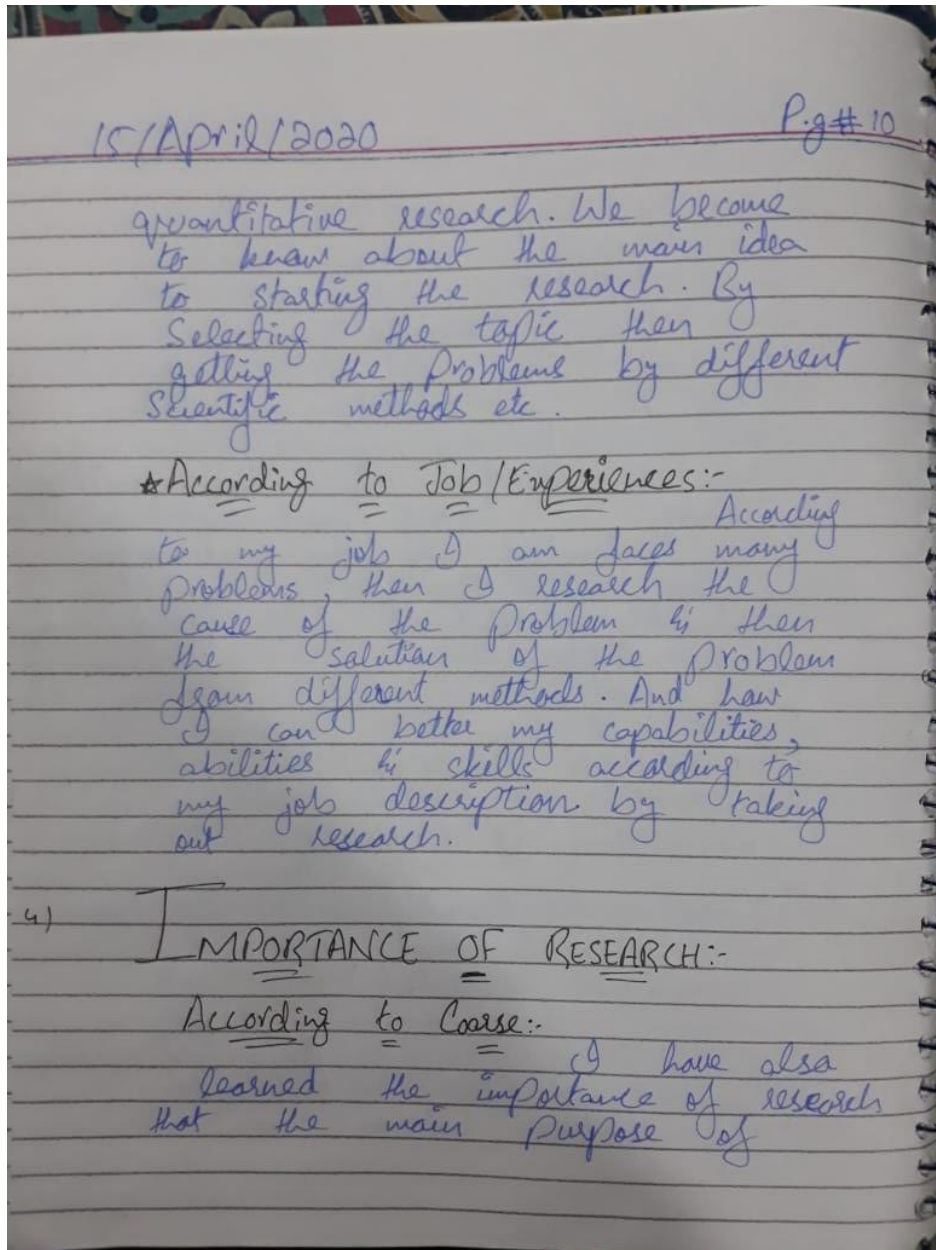 15/April/2020 P.g# 10
quantitative research. We become
to know about the main idea
to starting the research. By
Selecting the topic then
getting the Problems by different
Scientific methods etc.
*According to Job/Experiences:-
According
to my job I am faces many
problems, then I research the
cause of the problem & then
the solution of the problem
from different methods. And how
I can better my capabilities,
abilities & skills according to
my job description by taking
out research.
4) IMPORTANCE OF RESEARCH:-
According to Coarse:-
I have also
learned the importance of research
that the main purpose of